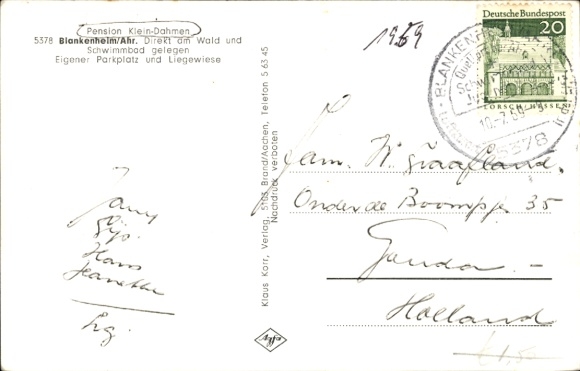 Pension Klein-Dahmen
5378 Blankenheim/Ahr. Direkt am Wald und
Schwimmbad gelegen
Eigener Parkplatz und Liegewiese
1969
Deutsche Bundespost
20
LORSCH · HESSEN
BLANKENHEIM
10.-7.69
5378
Klaus Karr, Verlag, 5103 Brand/Aachen, Telefon 5 63 45
Nachdruck verboten
Fam. W. Graafland.
Onder de Boompjes 35
Gouda. -
Holland
Hans
Jeanette
agfa
€ 1,50